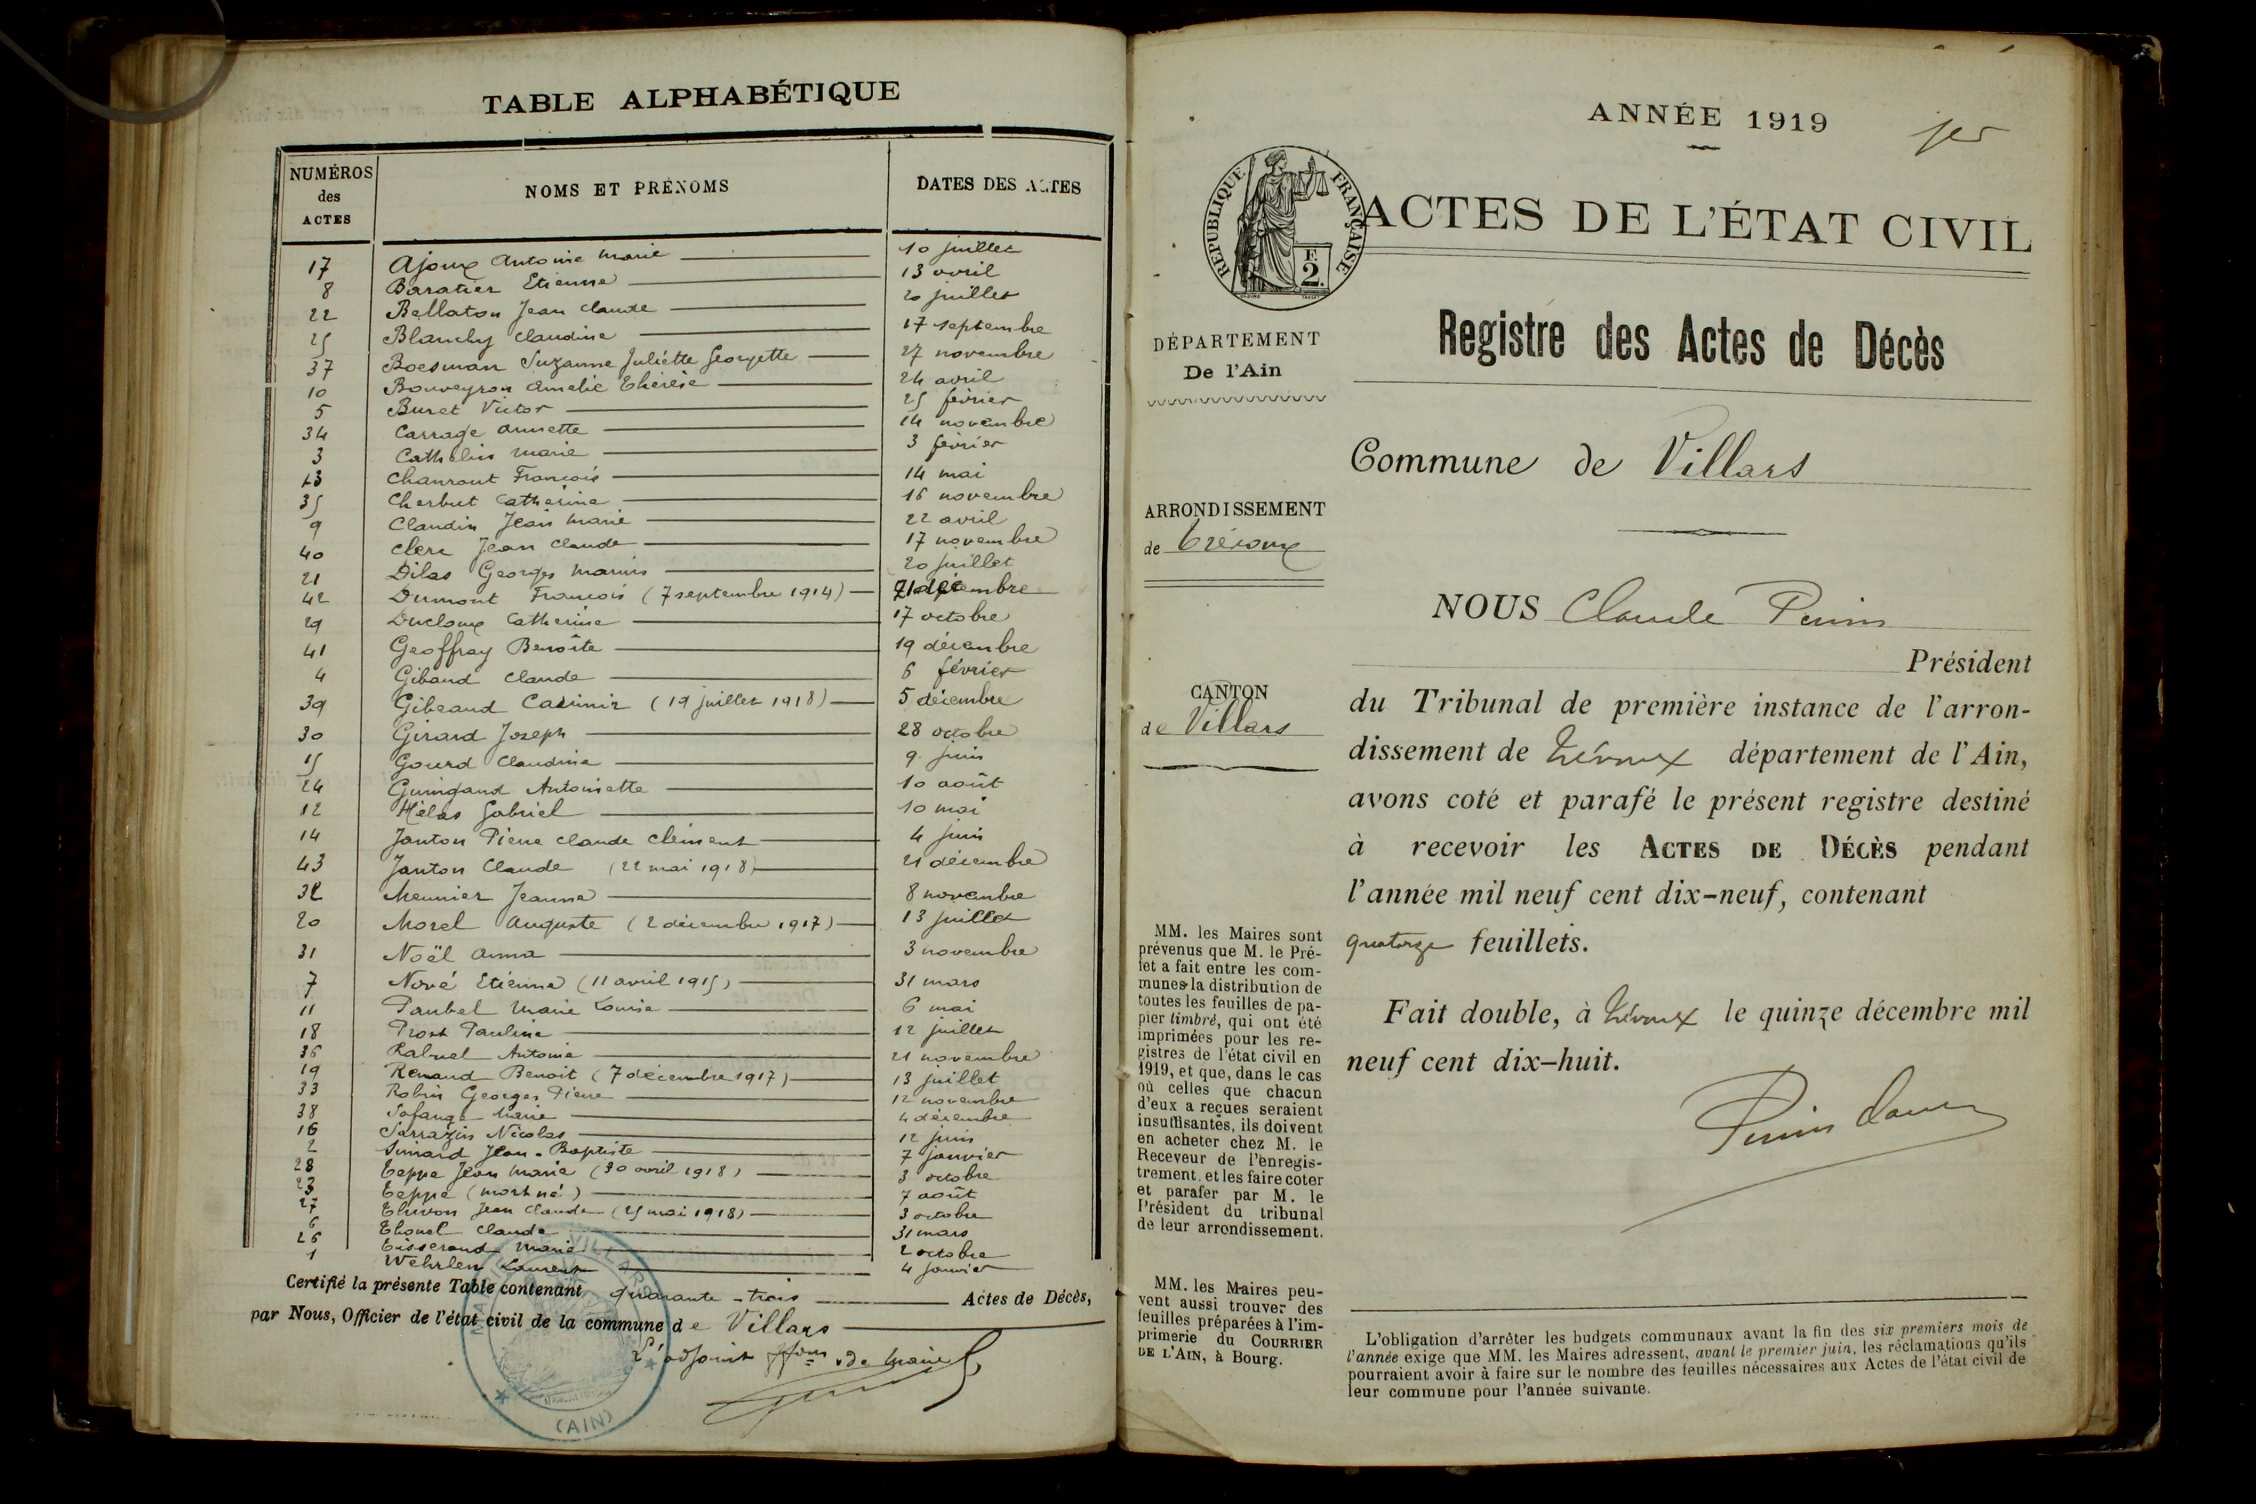 TABLE ALPHABÉTIQUE
NUMÉROS des ACTES
NOMS ET PRÉNOMS
DATES DES ACTES
17 Ajoux Antoine Marie 10 juillet
8 Baratier Etienne 13 avril
22 Bellaton Jean Claude 20 juillet
25 Blanchy Claudine 17 septembre
37 Boesman Suzanne Juliette Georgette 27 novembre
10 Bouveyron Amélie Thérèse 24 avril
5 Buret Victor 25 février
34 Carrage Annette 14 novembre
3 Cathelin Marie 3 février
13 Chanrout François 14 mai
35 Cherbut Catherine 16 novembre
9 Claudin Jean Marie 22 avril
40 Clerc Jean Claude 17 novembre
21 Dilas Georges Marius 20 juillet
42 Dumont François (7 septembre 1914)
29 Ducloux Catherine 17 octobre
41 Geoffray Benoîte 19 décembre
4 Gibaud Claude 6 février
39 Gibeaud Casimir (19 juillet 1918) 5 décembre
30 Girard Joseph 28 octobre
15 Gourd Claudine 9 juin
24 Guingand Antoinette 10 août
12 Hélas Gabriel 10 mai
14 Janton Pierre Claude Clément 4 juin
43 Janton Claude (22 mai 1918) 21 décembre
32 Meunier Jeanne 8 novembre
20 Morel Auguste (2 décembre 1917) 13 juillet
31 Noël Anna 3 novembre
7 Nové Etienne (11 avril 1915) 31 mars
11 Paubel Marie Louise 6 mai
18 Prost Pauline 12 juillet
36 Rabuel Antoine 21 novembre
19 Renaud Benoit (7 décembre 1917) 13 juillet
33 Robin Georges Pierre 12 novembre
38 Sofange Marie 4 décembre
16 Sarrazin Nicolas 12 juin
2 Simard Jean-Baptiste 7 janvier
28 Teppe Jean Marie (30 avril 1918) 3 octobre
23 Teppe (mort né) 7 août
27 Thivon Jean Claude (25 mai 1918) 3 octobre
6 Thonel Claude 31 mars
26 Tisserand Marie 2 octobre
1 Wehrlen Laurent 4 janvier
Certifié la présente Table contenant quarante-trois Actes de Décès,
par Nous, Officier de l'état civil de la commune de Villars
L'adjoint ffons de Maire
VILLARS
(AIN)
ANNÉE 1919
1er
RÉPUBLIQUE FRANÇAISE
F. 2.
ACTES DE L'ÉTAT CIVIL
Registre des Actes de Décès
DÉPARTEMENT
De l'Ain
Commune de Villars
ARRONDISSEMENT
de Trévoux
CANTON
de Villars
NOUS Claude Perrin
Président
du Tribunal de première instance de l'arron-
dissement de Trévoux département de l'Ain,
avons coté et parafé le présent registre destiné
à recevoir les ACTES DE DÉCÈS pendant
l'année mil neuf cent dix-neuf, contenant
quatorze feuillets.
Fait double, à Trévoux le quinze décembre mil
neuf cent dix-huit.
MM. les Maires sont
prévenus que M. le Pré-
fet a fait entre les com-
munes la distribution de
toutes les feuilles de pa-
pier timbré, qui ont été
imprimées pour les re-
gistres de l'état civil en
1919, et que, dans le cas
où celles que chacun
d'eux a reçues seraient
insuffisantes, ils doivent
en acheter chez M. le
Receveur de l'enregis-
trement, et les faire coter
et parafer par M. le
Président du tribunal
de leur arrondissement.
MM. les Maires peu-
vent aussi trouver des
feuilles préparées à l'im-
primerie du COURRIER
DE L'AIN, à Bourg.
L'obligation d'arrêter les budgets communaux avant la fin des six premiers mois de
l'année exige que MM. les Maires adressent, avant le premier juin, les réclamations qu'ils
pourraient avoir à faire sur le nombre des feuilles nécessaires aux Actes de l'état civil de
leur commune pour l'année suivante.